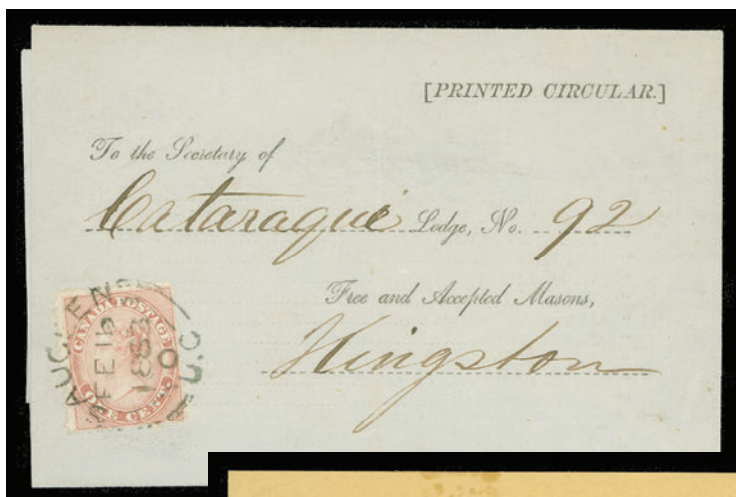 [PRINTED CIRCULAR.]
To the Secretary of
Cataraqui Lodge, No. 92
Free and Accepted Masons,
Kingston
CANADA POSTAGE
ONE CENT
FE 16
U.C